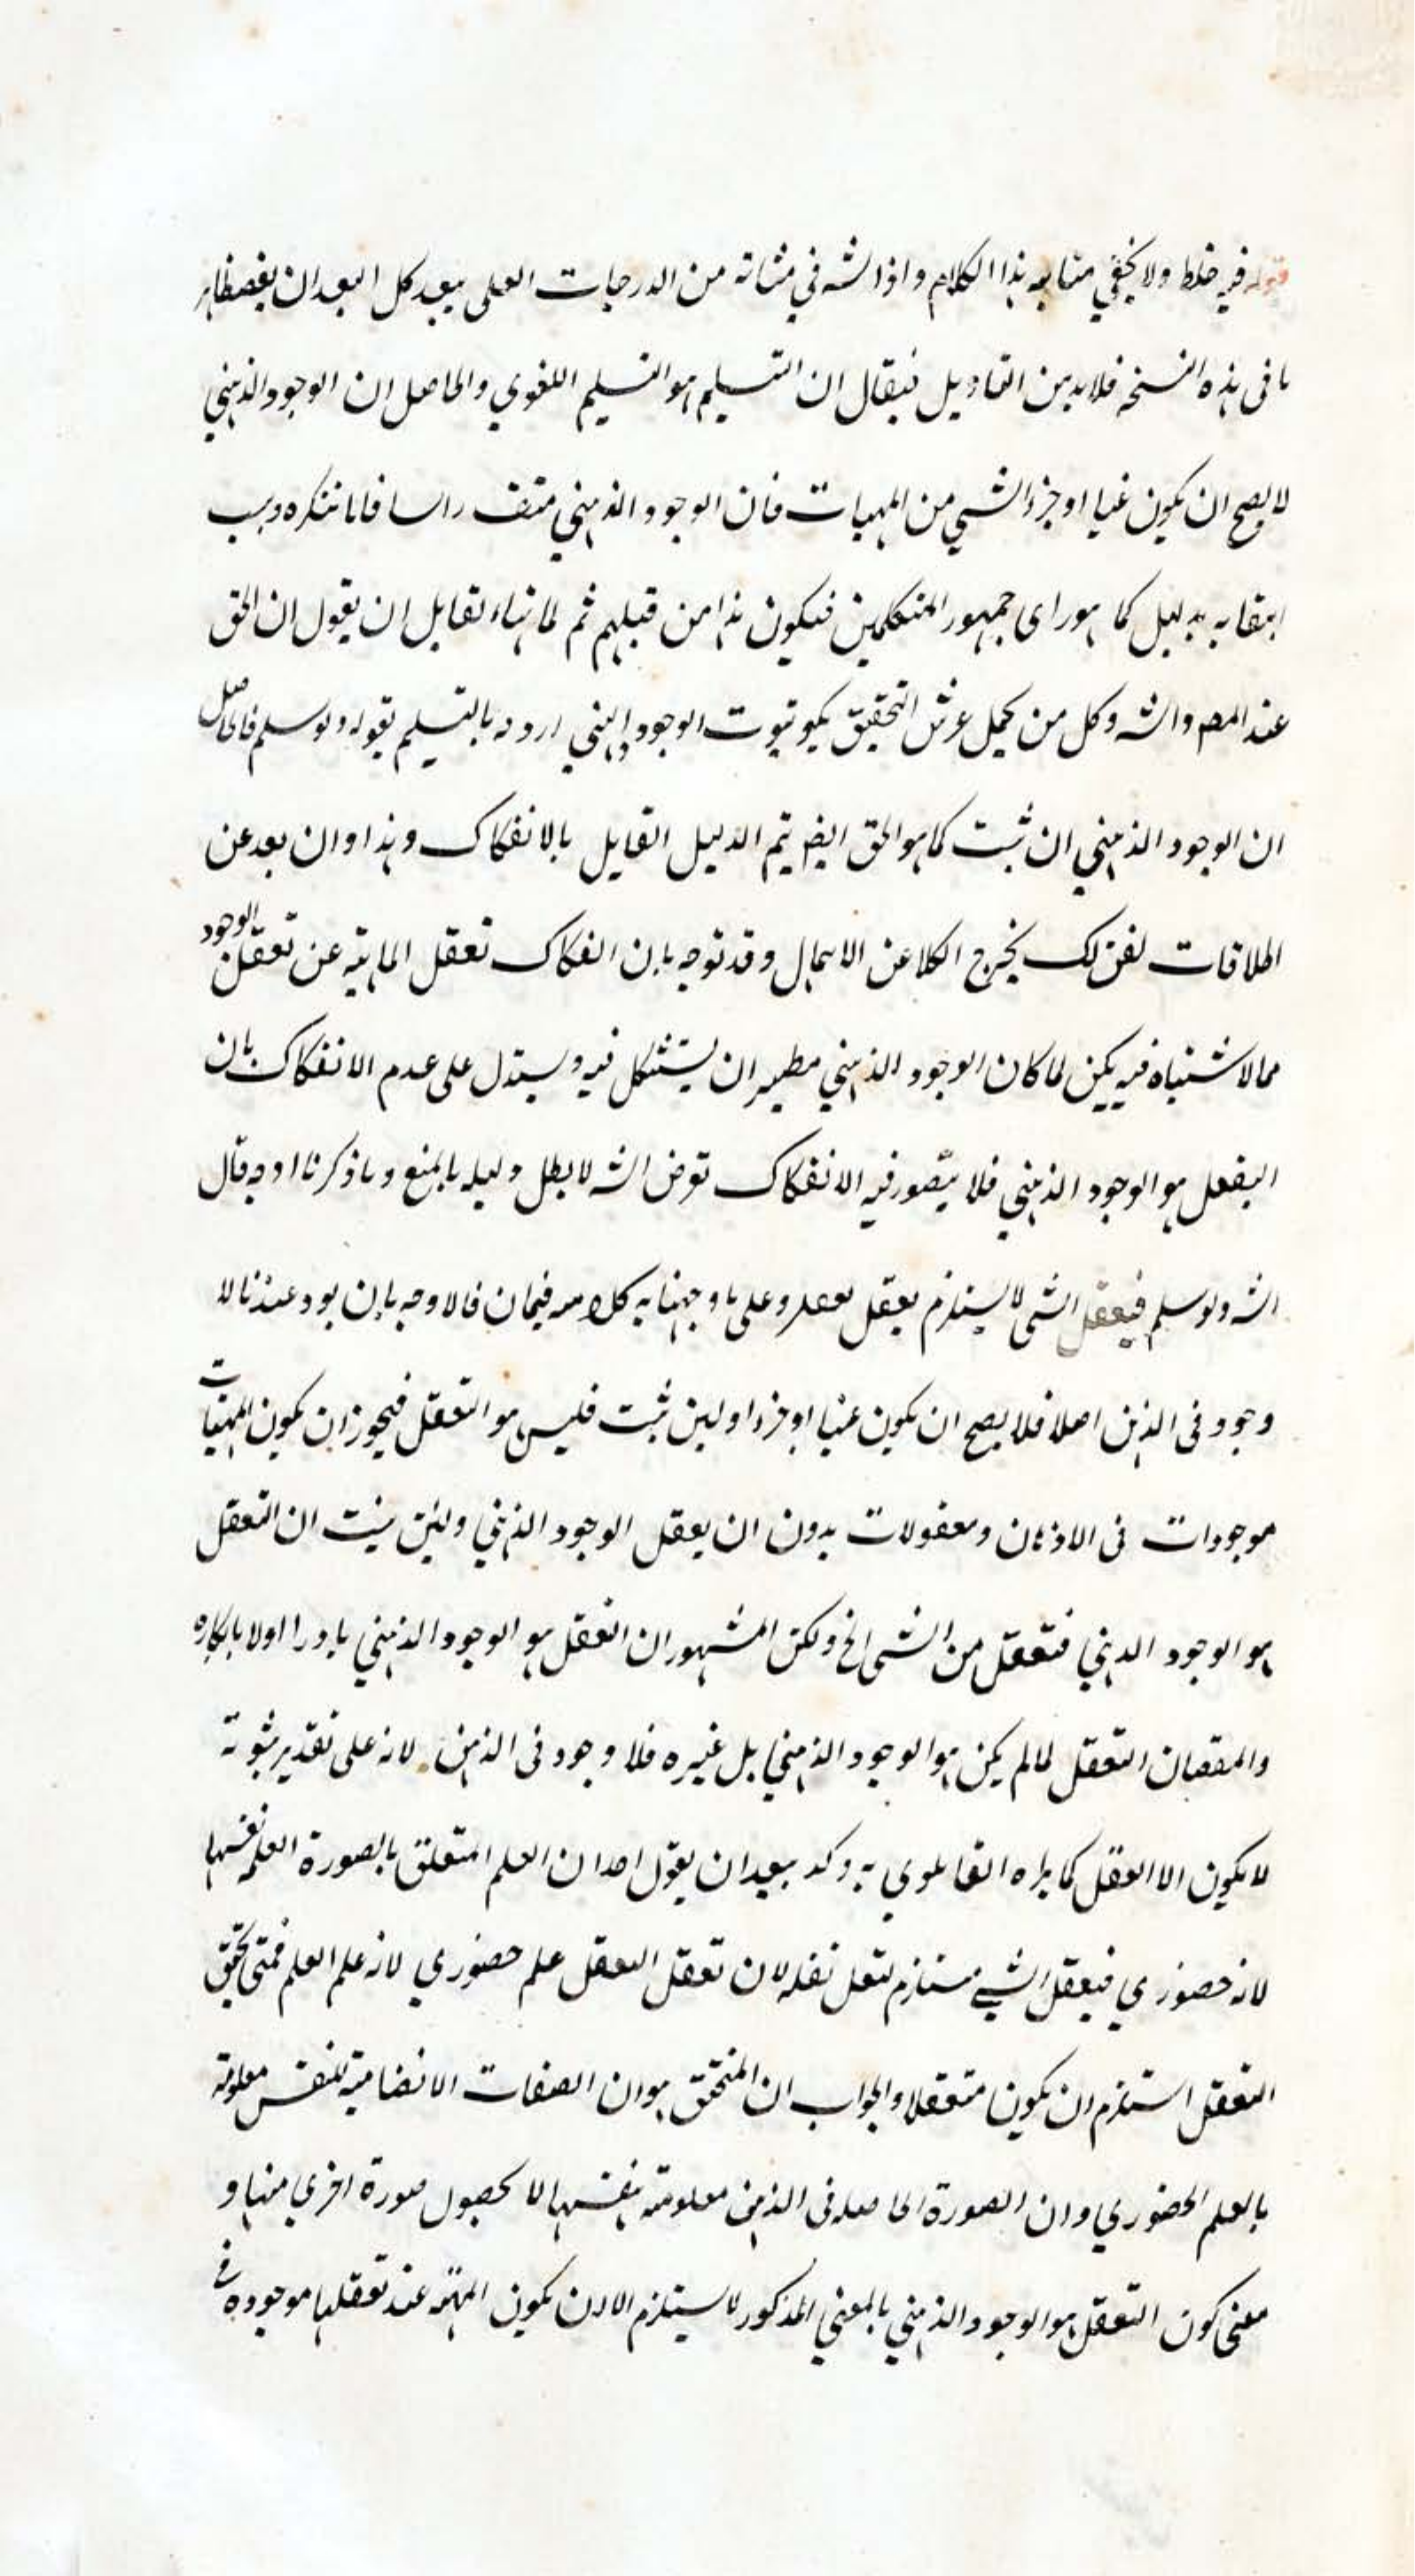 قوله فيه خلط ولا يخفي متانه هذا الكلام واذا الشه في مثانه من الدرجات العلى بعيد كل البعد ان
ما فى هذه النسخه فلا بد من التاويل فيقال ان التسليم هو التسليم اللغوي والحاصل ان الوجود الذهني
لا يصح ان يكون عينا او جزء الشي من المهيات فان الوجود الذهني منتف راسا فانا ننكره
بدليل كما هو راى جمهور المتكلمين فيكون هذا من قبلهم ثم لما ان يقول ان الحق
عند المصم والشه وكل من عرش التحقيق ثبوت الوجود الذهني اردد بالتسليم بقوله ولوسلم فالحاصل
ان الوجود الذهني ان ثبت كما هو الحق ايضا يتم الدليل القايل بالانفكاك وهذا وان بعد عن
اطلاقات يخرج الكلا عن الاهمال وقد توجه بان انفكاك تعقل الماهية عن تعقل الوجود
مما لا اشتباه فيه يكن لما كان الوجود الذهني ان يستشكل فيه ويستدل على عدم الانفكاك بان
التعقل هو الوجود الذهني فلا يتصور فيه الانفكاك تعرض الشه لابطل دليله بالمنع وما ذكرنا اوجه قال
الشه ولوسلم فيعقل الشى لا يستلزم تعقل وعلى ما وجهنا به كلامه فالاوجه بان عندنا لا
وجود فى الذهن اصلا فلا يصح ان يكون عينا او جزءا ولين ثبت فليس هو التعقل فيجوز ان يكون المهيات
موجودات فى الاذهان ومعقولات بدون ان يعقل الوجود الذهني ولين ثبت ان التعقل
هو الوجود الذهني فتعقل من الشى الخ ولكن المشهور ان التعقل هو الوجود الذهني اولا بانكاره
التعقل لما لم يكن هو الوجود الذهني بل غيره فلا وجود فى الذهن لانه على تقدير ثبوته
لا يكون الا العقل كما يراه بعيد ان يقول احد ان العلم المتعلق بالصورة العلمه نفسها
لانه حضوري فيعقل الشيء مستلزم لان تعقل التعقل علم حضوري لانه علم العلم فمتى تحقق
التعقل استلزم ان يكون متعقلا والجواب ان المتحقق هو ان الصفات الانضمامية للنفس معلومة
بالعلم الحضوري وان الصورة الحاصله فى الذهن معلومته بنفسها لا بحصول صورة اخري منها و
معنى كون التعقل هو الوجود الذهني بالمعني المذكور لا يستلزم الا ان يكون المهيه عند تعقلها موجودة فى